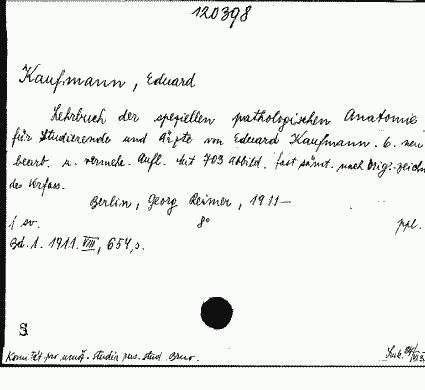 120398
Kaufmann, Eduard
Lehrbuch der speziellen pathologischen Anatomie
für Studierende und Ärzte von Eduard Kaufmann. 6. neu
bearb. u. vermehr. Aufl. Mit 703 Abbild. fast sämt. nach Orig.-zeichn
des Verfass.
Berlin, Georg Reimer, 1911-
1 sv. 8° ppl.
Bd. 1. 1911. VIII, 654, s.
S
Komitét pro umož. studia rus. stud. Brno.